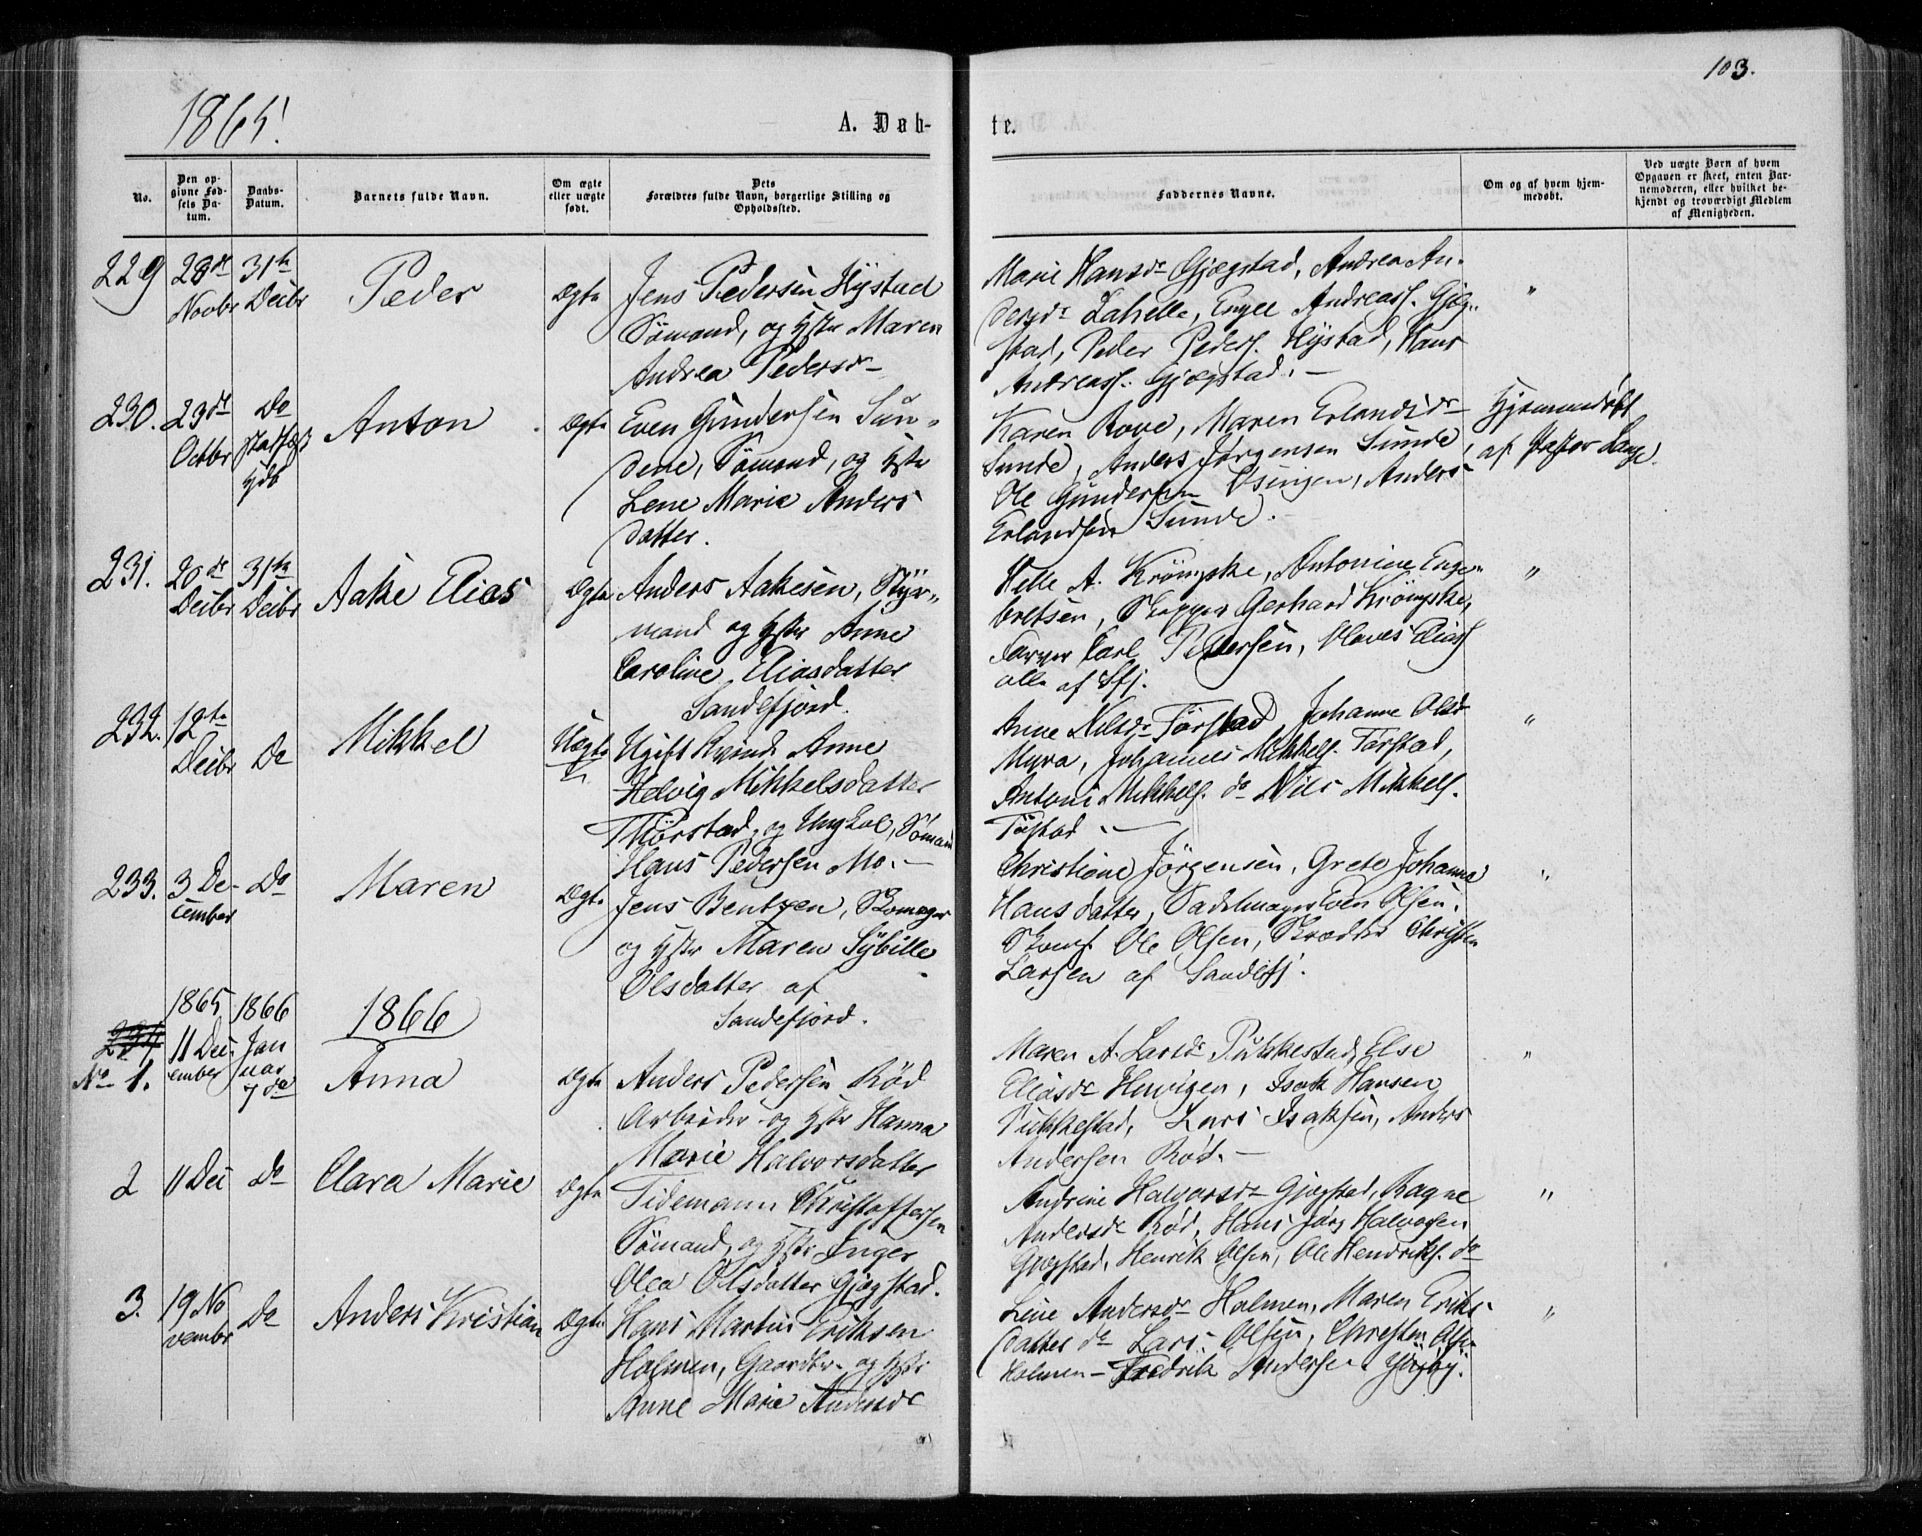 1865.
A. Døb-
te.
103.
No.
Den op-
givne Fød-
sels Da-
tum.
Daabs-
Datum.
Barnets fulde Navn.
Om ægte
eller uægte
født.
Dets
Forældres fulde Navn, borgerlige Stilling og
Opholdssted.
Faddernes Navne.
Om og af hvem hjem-
medøbt.
Ved uægte Børn af hvem
Opgaven er skeet, enten Bar-
nemoderen, eller hvilket be-
kjendt og troværdigt Medlem
af Menigheden.
229
28de
Novbr
31te
Decbr
Peder
Ægte
Jens Pedersen Hystad
Sømand, og Hstr Maren
Andrea Pedersdr
Marie Hansdr Gjøgstad, Andrea An-
dersdr Lahelle, Engel Andreass. Gjøg-
stad, Peder Peders. Hystad, Hans
Andreass. Gjøgstad. —
"
230.
23de
Octbr
Do
stadfæst
Hdb
Anton
Ægte
Even Gundersen Sun-
dene, Sømand, og Hstr
Lene Marie Anders
datter.
Karen Rove, Maren Erlandsdr
Sunde, Anders Jørgensen Sunde,
Ole Gundersen, Anders
Erlandsen Sunde.
Hjemmedøbt
af Pastor Lange.
231.
20de
Decbr
31te
Decbr
Aake Elias
Ægte
Anders Aakesen, Styr-
mand og Hstr Anne
Caroline Eliasdatter
Sandefjord.
Helle A. Krømpke, Antonine Enge-
bretsen, Skipper Gerhard Krømpke,
Farver Carl Pedersen, Olaves Eliass
alle af Sfj.
"
232.
12te
Decbr
Do
Mikkel
Uægte
Ugift Kvinde Anne
Helvig Mikkelsdatter
Thorstad, og Ungkarl, Sømand
Hans Pedersen Mo. —
Anne Nilsdr Torstad, Johanne Olsdr
Myra, Johannes Mikkels. Torstad,
Antoni Mikkels. do Nils Mikkels.
Tostad. —
"
233.
3 De-
cember
Do
Maren
Ægte
Jens Bentzen, Skomager
og Hstr Maren Sybille
Olsdatter af
Sandefjord.
Christine Jørgensen, Grete Johanne
Hansdatter, Sadelmager Even Olsen,
Skom. Ole Olsen, Skrædder Christen
Larsen af Sandefj.
"
1865
1866
1866
234
No 1.
11 Dec-
ember
Jan
uar
7de
Anna
Ægte
Anders Pedersen Rød
Arbeider og Hstr Hanna
Marie Halvorsdatter
Maren A. Larsdr Pukkestad, Else
Eliasdr Huvigen, Isak Hansen
Pukkestad, Lars Isaksen, Anders
Andersen Rød. —
"
2
11 Dec
Do
Clara Marie
Ægte
Tidemann Christoffersen
Sømand, og Hstr Inger
Olea Olsdatter Gjøgstad.
Andrine Halvorsdr Gjøgstad, Ragne
Andersdr Rød, Hans Jørg Halvorsen
Gjøgstad, Henrik Olsen, Ole Hendriks. do
"
3.
19 No
vembr
Do
Anders Kristian
Ægte
Hans Martin Eriksen
Holmen, Gaardbr. og Hstr
Anne Marie Andersdr
Line Andersdr Holmen, Maren Eriks-
datter do Lars Olsen, Christen Olsen
Holmen — Fredrik Andersen
"